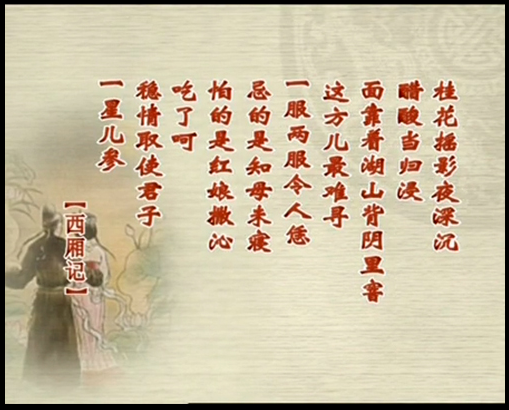 桂花摇影夜深沉
醋酸当归浸
面靠着湖山背阴里窨
这方儿最难寻
一服两服令人恁
忌的是知母未寝
怕的是红娘撒沁
吃了呵
稳情取使君子
一星儿参
【西厢记】